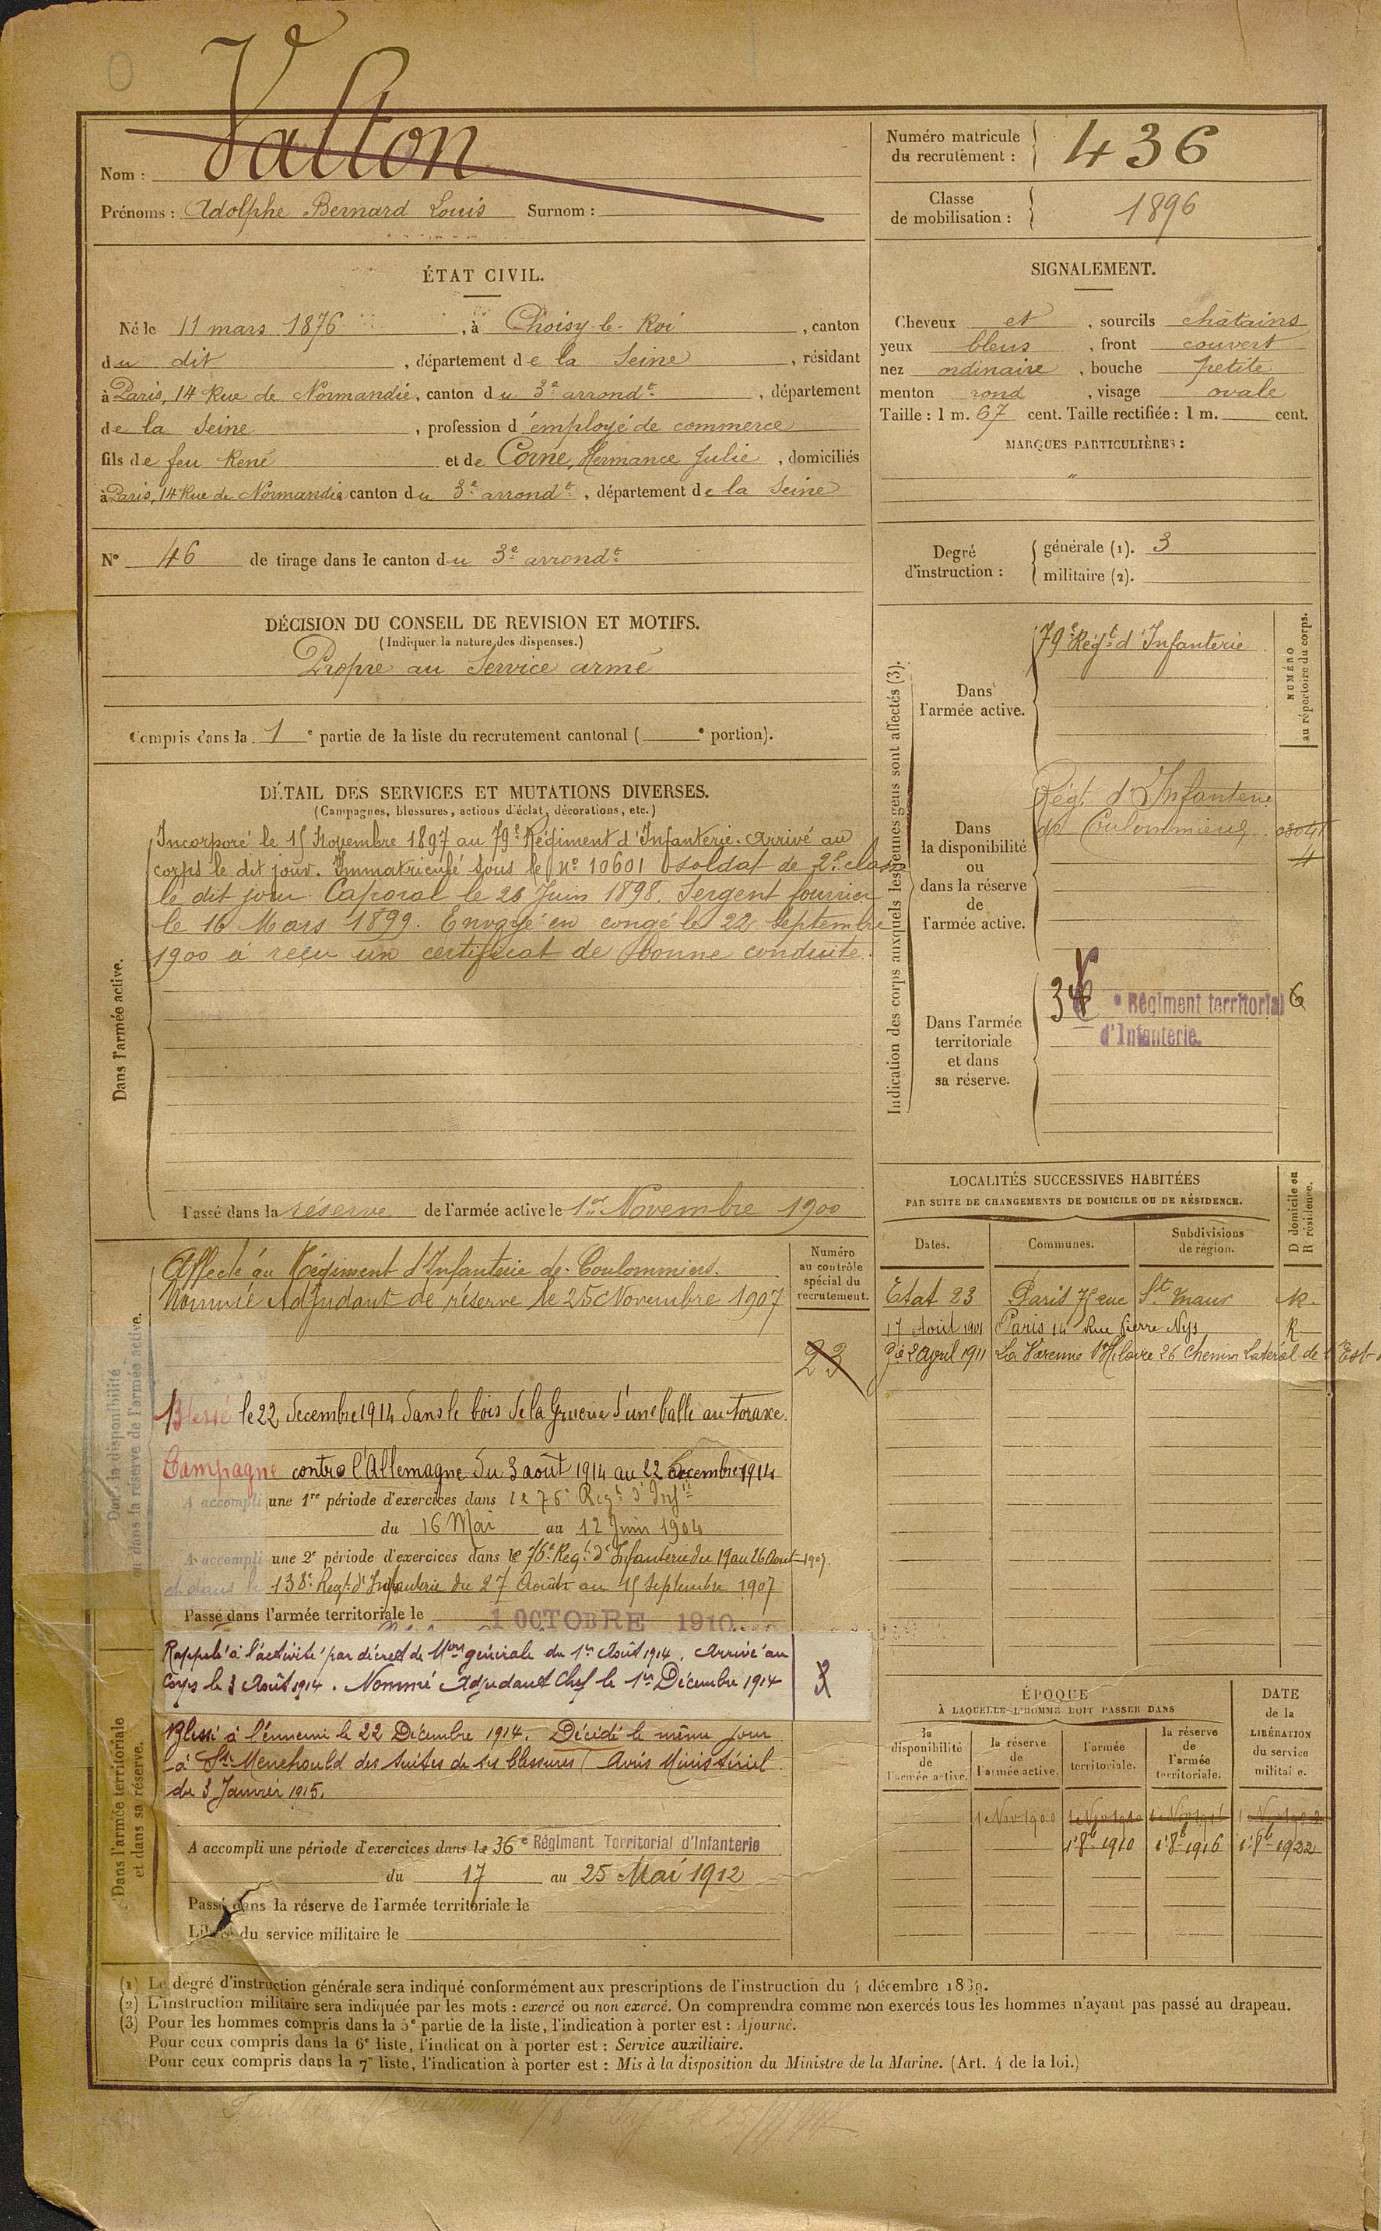 Nom : Valton
Prénoms : Adolphe Bernard Louis Surnom :
Numéro matricule du recrutement : 436
Classe de mobilisation : 1896
ÉTAT CIVIL.
Né le 11 mars 1876, à Choisy-le-Roi, canton
du dit, département de la Seine, résidant
à Paris, 14 Rue de Normandie, canton du 3e arrondt, département
de la Seine, profession d'employé de commerce
fils de feu René et de Corne, Hermance Julie, domiciliés
à Paris, 14 Rue de Normandie canton du 3e arrondt, département de la Seine
N° 46 de tirage dans le canton du 3e arrondt
SIGNALEMENT.
Cheveux et, sourcils châtains
yeux bleus, front couvert
nez ordinaire, bouche petite
menton rond, visage ovale
Taille : 1 m. 67 cent. Taille rectifiée : 1 m. cent.
MARQUES PARTICULIÈRES :
"
Degré d'instruction : générale (1). 3
militaire (2).
DÉCISION DU CONSEIL DE REVISION ET MOTIFS.
(Indiquer la nature des dispenses.)
Propre au Service armé
Compris dans la 1e partie de la liste du recrutement cantonal ( e portion).
DÉTAIL DES SERVICES ET MUTATIONS DIVERSES.
(Campagnes, blessures, actions d'éclat, décorations, etc.)
Dans l'armée active.
Incorporé le 15 Novembre 1897 au 79e Régiment d'Infanterie. Arrivé au
corps le dit jour. Immatriculé sous le No 10601 soldat de 2e classe
le dit jour Caporal le 26 Juin 1898. Sergent fourrier
le 16 Mars 1899. Envoyé en congé le 22 Septembre
1900 a reçu un certificat de bonne conduite.
Passé dans la réserve de l'armée active le 1er Novembre 1900
Indication des corps auxquels les jeunes gens sont affectés (3).
NUMÉRO au répertoire du corps.
Dans l'armée active.
79e Régt d'Infanterie
Dans la disponibilité ou dans la réserve de l'armée active.
Régt d'Infanterie
de Coulommiers
4
Dans l'armée territoriale et dans sa réserve.
Régiment territorial 6
d'Infanterie.
LOCALITÉS SUCCESSIVES HABITÉES
PAR SUITE DE CHANGEMENTS DE DOMICILE OU DE RÉSIDENCE.
D domicile ou R résidence.
Dates. Communes. Subdivisions de région.
17 Août 1901 Paris 14 Rue Pierre Nys R
2 avril 1911 La Varenne St Hilaire 26 Chemin Latéral de l'Est
Numéro au contrôle spécial du recrutement.
Dans la disponibilité ou dans la réserve de l'armée active.
Affecté au Régiment d'Infanterie de Coulommiers.
Nommé Adjudant de réserve le 25 Novembre 1907
23
Blessé le 22 décembre 1914 dans le bois de la Gruerie d'une balle au toraxe.
Campagne contre l'Allemagne du 3 août 1914 au 22 décembre 1914
A accompli une 1re période d'exercices dans le 76e Régt d'Infie
du 16 Mai au 12 Juin 1904
A accompli une 2e période d'exercices dans le 76e Régt d'Infanterie du 19 au 26 Août 1907.
et dans le 138e Régt d'Infanterie du 27 Août au 15 Septembre 1907
Passé dans l'armée territoriale le 1 OCTOBRE 1910
Dans l'armée territoriale et dans sa réserve.
Rappelé à l'activité par décret de Mon générale du 1er Août 1914. Arrivé au
Corps le 3 Août 1914. Nommé Adjudant Chef le 1er Décembre 1914
Blessé à l'ennemi le 22 Décembre 1914. Décédé le même jour
à Ste Menehould des suites de ses blessures Avis Ministériel
du 3 Janvier 1915.
A accompli une période d'exercices dans le 36e Régiment Territorial d'Infanterie
du 17 au 25 Mai 1912
Passé dans la réserve de l'armée territoriale le
Libéré du service militaire le
ÉPOQUE
À LAQUELLE L'HOMME DOIT PASSER DANS
la disponibilité de l'armée active.
la réserve de l'armée active.
l'armée territoriale.
la réserve de l'armée territoriale.
DATE de la LIBÉRATION du service militaire.
1 Nov 1900
1er 8bre 1910 1er 8bre 1916 1er 8bre 1922
(1) Le degré d'instruction générale sera indiqué conformément aux prescriptions de l'instruction du 4 décembre 1889.
(2) L'instruction militaire sera indiquée par les mots : exercé ou non exercé. On comprendra comme non exercés tous les hommes n'ayant pas passé au drapeau.
(3) Pour les hommes compris dans la 5e partie de la liste, l'indication à porter est : Ajourné.
Pour ceux compris dans la 6e liste, l'indication à porter est : Service auxiliaire.
Pour ceux compris dans la 7e liste, l'indication à porter est : Mis à la disposition du Ministre de la Marine. (Art. 4 de la loi.)